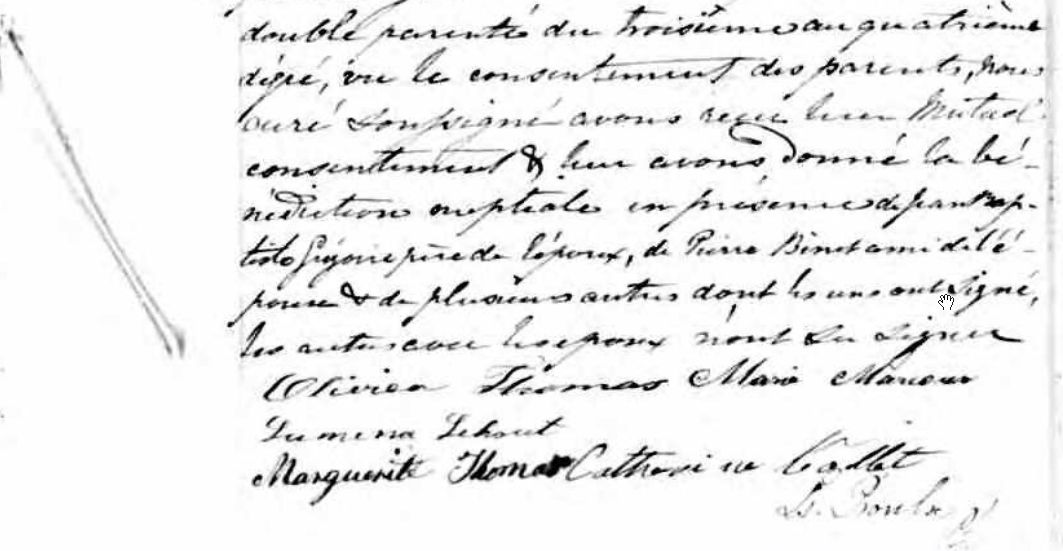 double parenté du troisième au quatrième
dégré, vu le consentement des parents, nous
curé Soussigné avons reçu leur Mutuel
consentement & leur avons donné la bé-
nédiction nuptiale en présence de Jean Bap-
tiste Grégoire père de l'époux, de Pierre Binet ami de l'é-
pouse & de plusieurs autres dont les uns ont Signé,
les autres avec les époux n'ont su signer
Thomas Marie
Lumena
Marguerite Thomas Catherine
Ls. Proulx